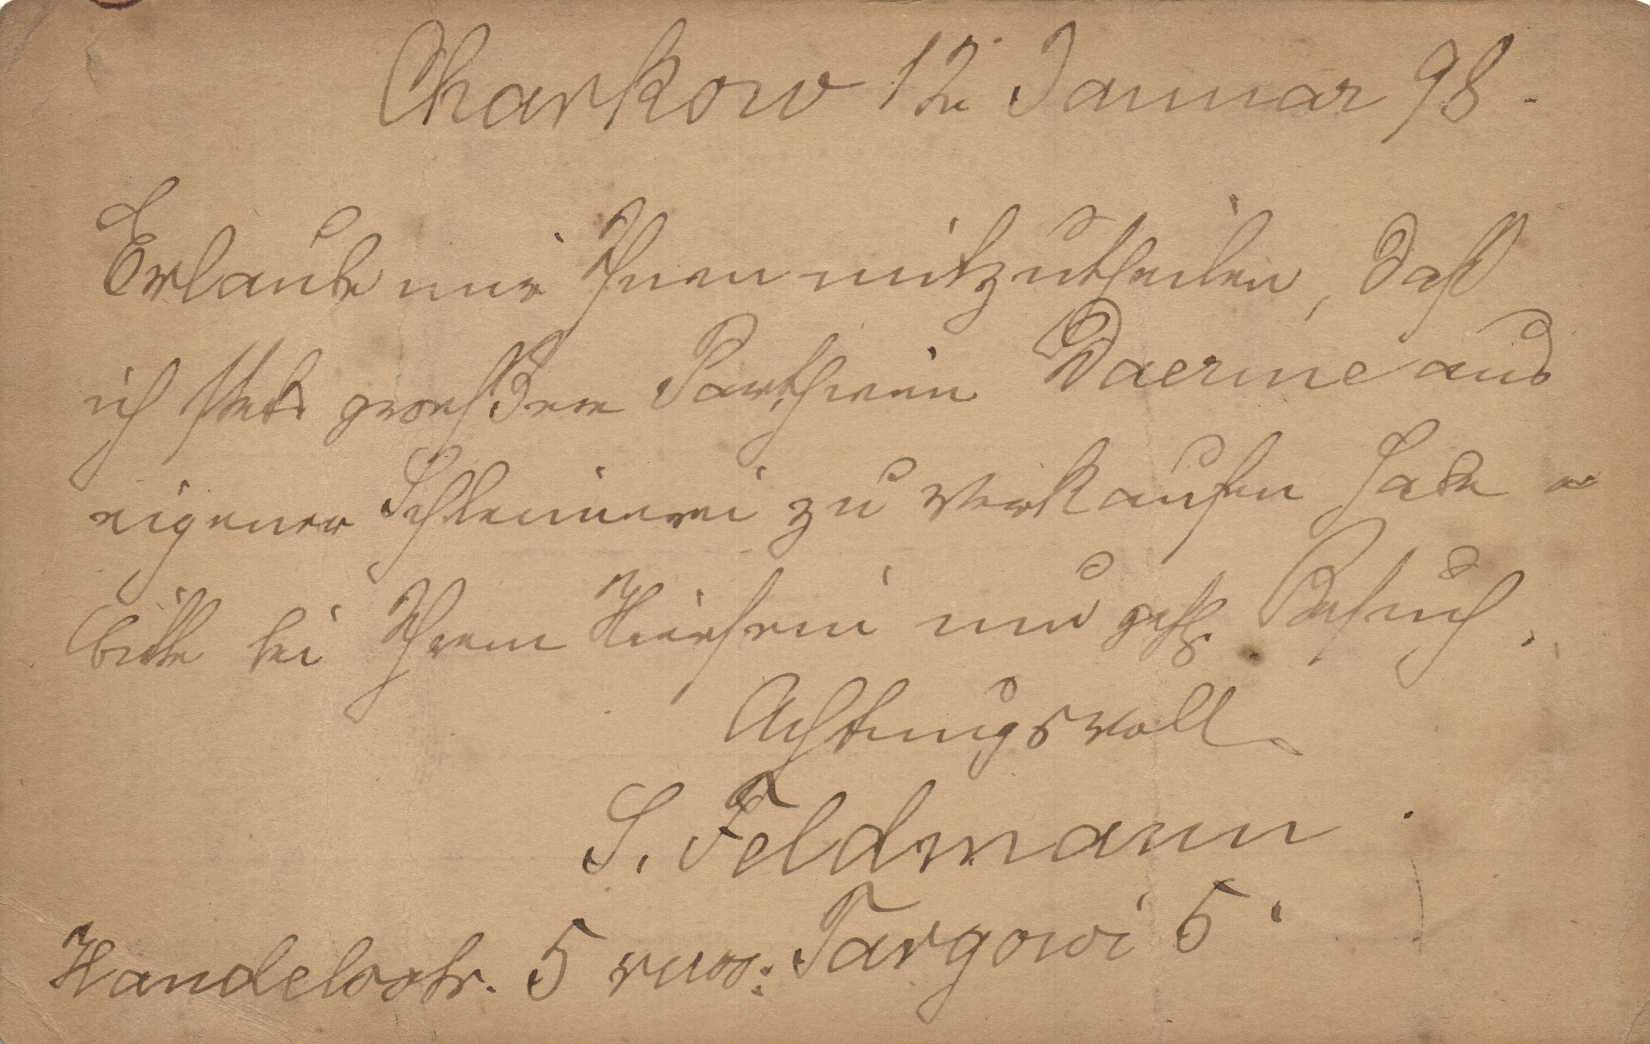 Charkow 12 Januar 98.
Erlaube mir Ihnen mitzutheilen, daß
ich stets groeßere Partheien Daerme aus
eigener Schleimerei zu verkaufen habe u
bitte bei Ihrem Hiersein um gefl. Besuch.
Achtungsvoll
S. Feldmann
Handelsstr. 5 russ: Targowi 5